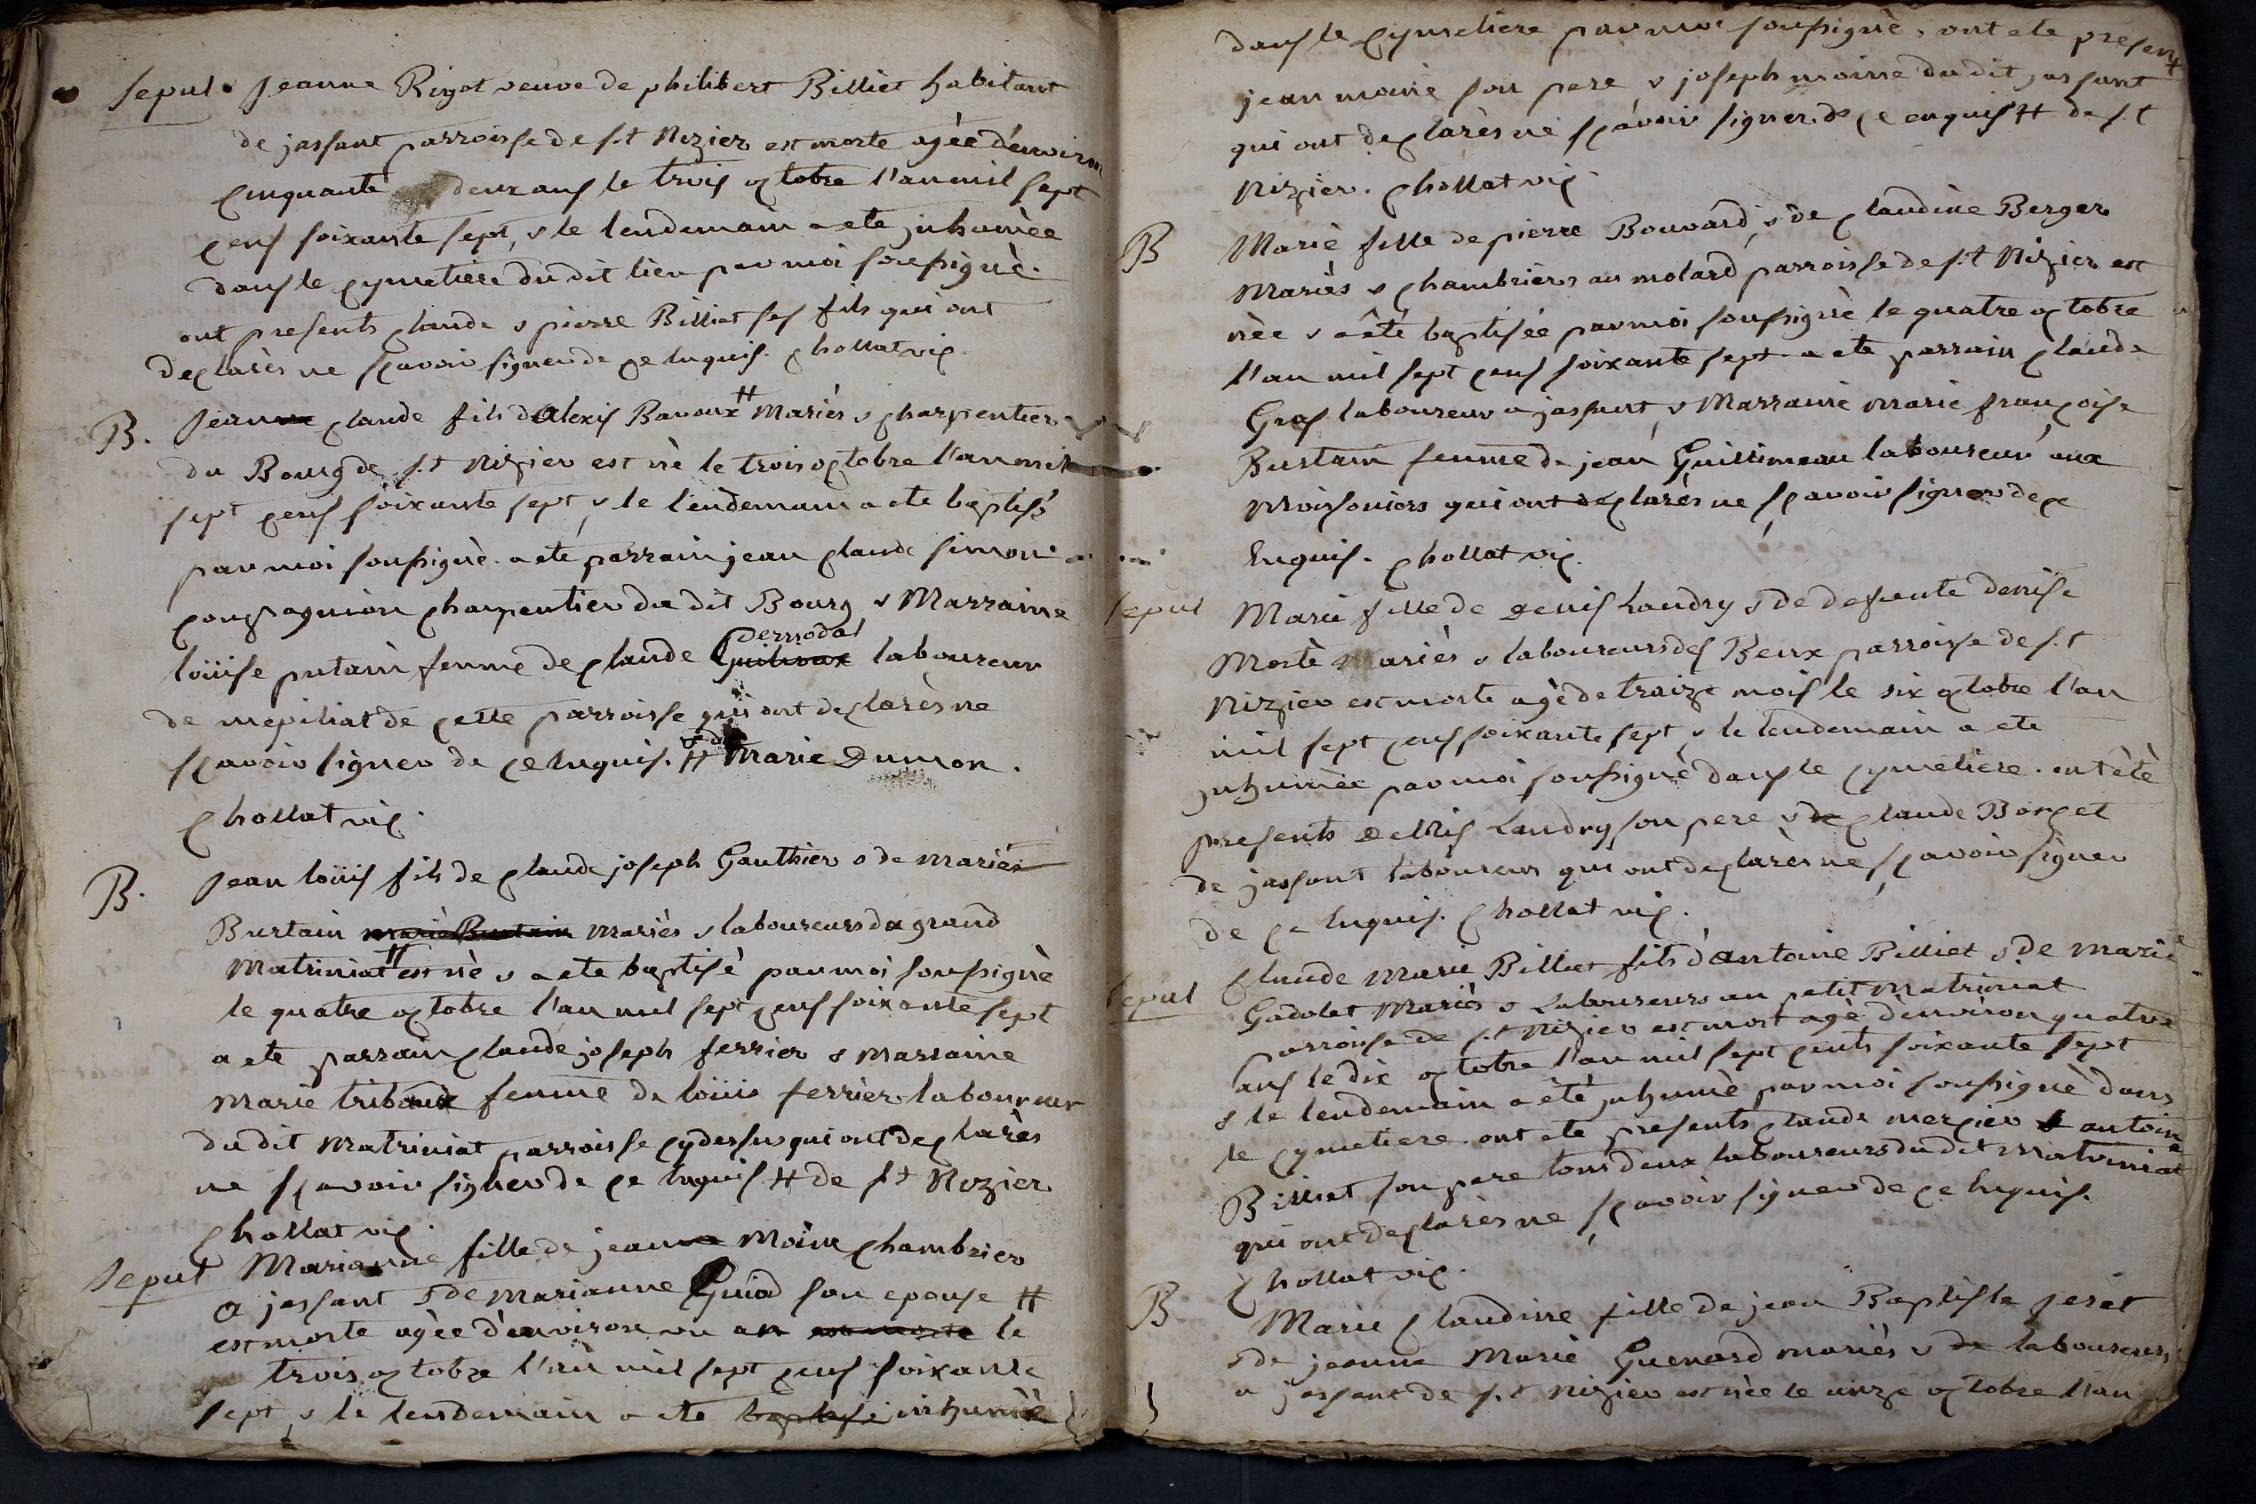 sepul. Jeanne Rigot veuve de philibert Billiet habitant
de jassant parroisse de s.t Nizier est morte agèe d'environ
cinquante deux ans le trois octobre l'an mil sept
cens soixante sept, & le lendemain a ete jnhumèe
dans le cymetiere du dit lieu par moi soussignè.
ont presents claude & pierre Billiet ses fils qui ont
declarès ne sçavoir signer de ce enquis. chollat vic.
B. Jean claude fils d'Alexis Bavoux # Mariès & charpentier
du Bourg de s.t Nizier est nè le trois octobre l'an mil
sept cens soixante sept, & le lendemain a ete baptisé
par moi soussignè. a ete parrain jean claude simon
compagnion charpentier du dit Bourg & Marraine
loüise putain femme de claude Pernodat laboureur
de mepiliat de cette parroisse qui ont declarès ne
sçavoir signer de ce enquis. # & de Marie Dumon.
chollat vic.
B. Jean loüis fils de claude joseph Gauthier & de mariè
Burtain mariès & laboureurs du grand
Matriniat # est nè & a ete baptisè par moi soussignè
le quatre octobre l'an mil sept cens soixante sept
a ete parrain claude joseph ferrier & marraine
Marie tribaux femme de loüis ferrier laboureur
du dit Matriniat parroisse cy dessus qui ont declarès
ne sçavoir signer de ce enquis # de s.t Nizier
chollat vic.
Sepul Marianne fille de jean Moine chambrier
a jassant & de Marianne Guid son epouse #
est morte agèe d'environ un an le
trois octobre l'an mil sept cens soixante
sept, & le lendemain a ete inhumèe
dans le cymetiere par moi soussignè, ont ete presents
jean moine son pere & joseph moine du dit jassant
qui ont declarès ne sçavoir signer de ce enquis # de s.t
Nizier. chollat vic.
B Marie fille de pierre Bouvard, & de claudine Berger
Mariès & chambriers au molard parroisse de s.t Nizier est
nèe & a été baptisée par moi soussignè le quatre octobre
l'an mil sept cens soixante sept. a ete parrain claude
Gras laboureur a jassant, & Marraine marie françoise
Burtain femme de jean Guillimeau laboureur aux
Moissoniers qui ont declarès ne sçavoir signer de ce
Enquis. chollat vic.
sepul Marie fille de Denis Landry & de defunte denise
Morte Mariès & laboureurs des Beux parroisse de s.t
Nizier est morte agè de traize mois le six octobre l'an
mil sept cens soixante sept, & le lendemain a ete
jnhumèe par moi soussignè dans le cymetiere. ont étè
presents Denis Landry son pere & claude Borcet
de jassant laboureurs qui ont declarès ne sçavoir signer
de ce Enquis. chollat vic.
sepul Claude Marie Billiet fils d'antoine Billiet & De Marie
Godolet Mariès & Laboureurs au petit Matriniat
parroisse de s.t Nizier est mort agè d'environ quatre
ans le dix octobre l'an mil sept cents soixante sept
& le lendemain a étè jnhumè par moi soussignè dans
le cymetiere. ont ete presents claude mercier & antoine
Billiet son pere tous deux laboureurs du dit Matriniat
qui ont declarès ne sçavoir signer de ce Enquis.
chollat vic.
B Marie Claudine fille de jean Baptiste jeret
& de jeanne Marie Guenard mariès & laboureurs
a jassant de s.t Nizier est nèe le onze octobre l'an